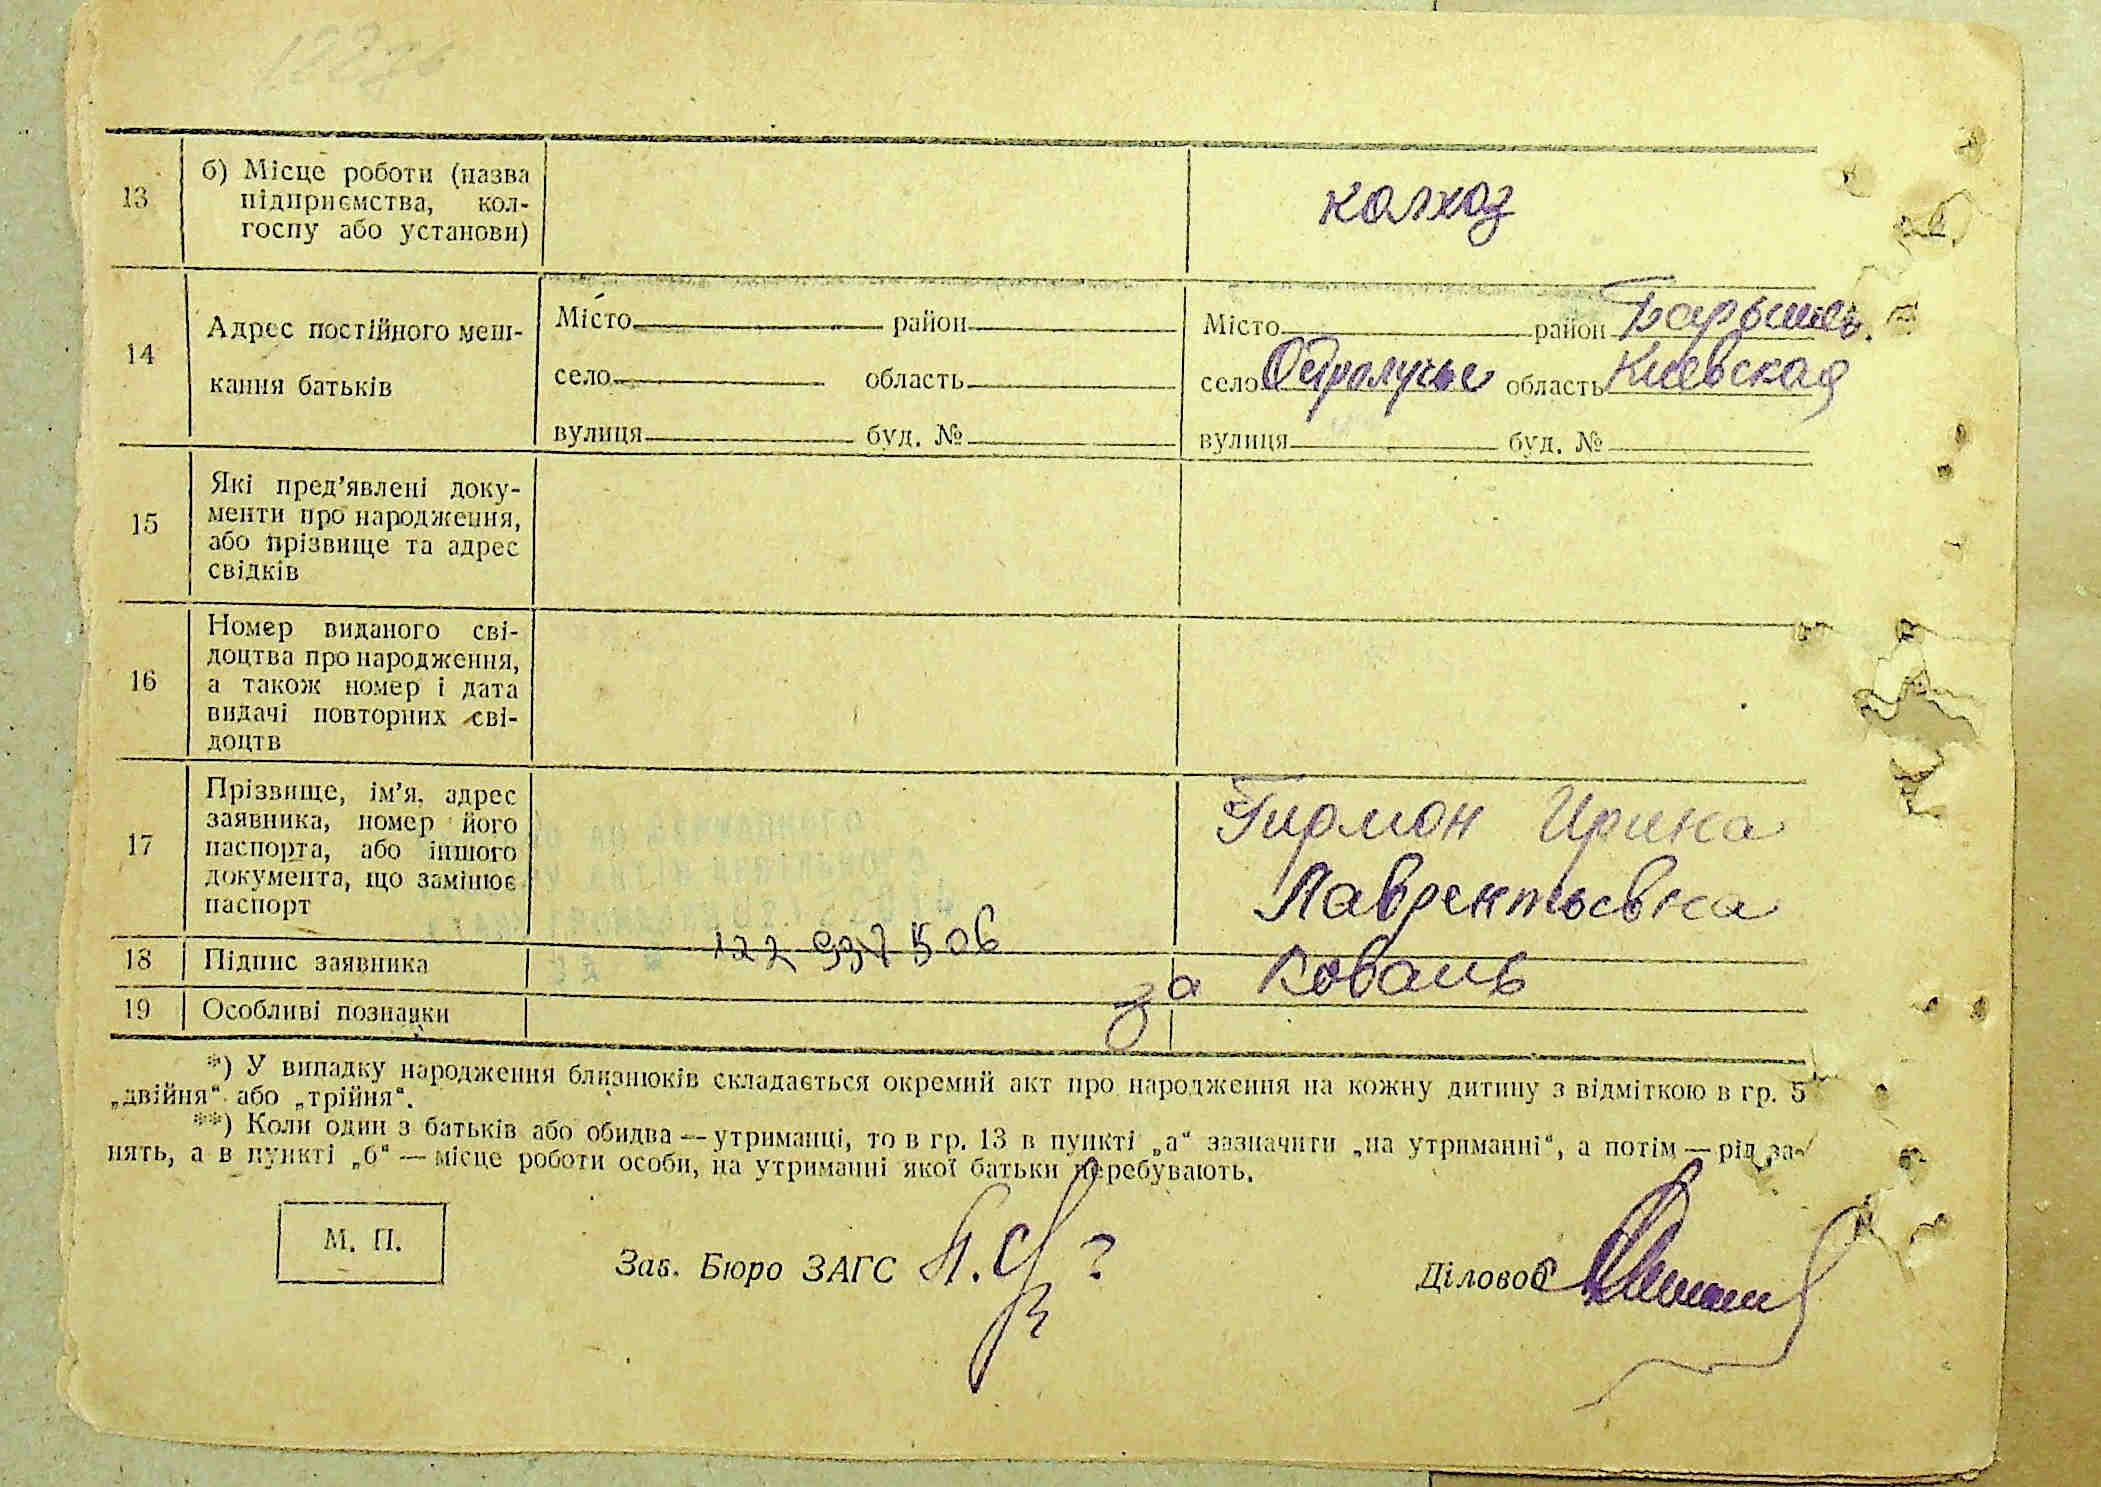 13
б) Місце роботи (назва
підприємства, кол-
госпу або установи)
колхоз
14
Адрес постійного меш-
кання батьків
Місто район
село область
вулиця буд. №
Місто район Барышев.
село Остролучье область Киевская
вулиця буд. №
15
Які пред'явлені доку-
менти про народження,
або прізвище та адрес
свідків
16
Номер виданого сві-
доцтва про народження,
а також номер і дата
видачі повторних сві-
доцтв
17
Прізвище, ім'я, адрес
заявника, номер його
паспорта, або іншого
документа, що замінює
паспорт
Ирина
Лаврентьевна
18 Підпис заявника
122 997 506
за Коваль
19 Особливі познаки
*) У випадку народження близнюків складається окремий акт про народження на кожну дитину з відміткою в гр. 5
„двійня“ або „трійня“.
**) Коли один з батьків або обидва — утриманці, то в гр. 13 в пункті „а“ зазначити „на утриманні“, а потім — рід за-
нять, а в пункті „б“ — місце роботи особи, на утриманні якої батьки перебувають.
М. П.
Зав. Бюро ЗАГС
Діловод